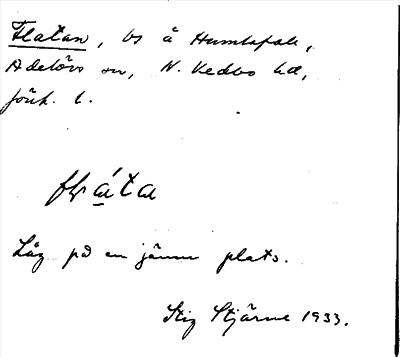 Flatan, bs å Humlafall,
Adelövs sn, N. Vedbo hd,
Jönk. l.
Låg på en jämn plats.
Stig Stjärne 1933.